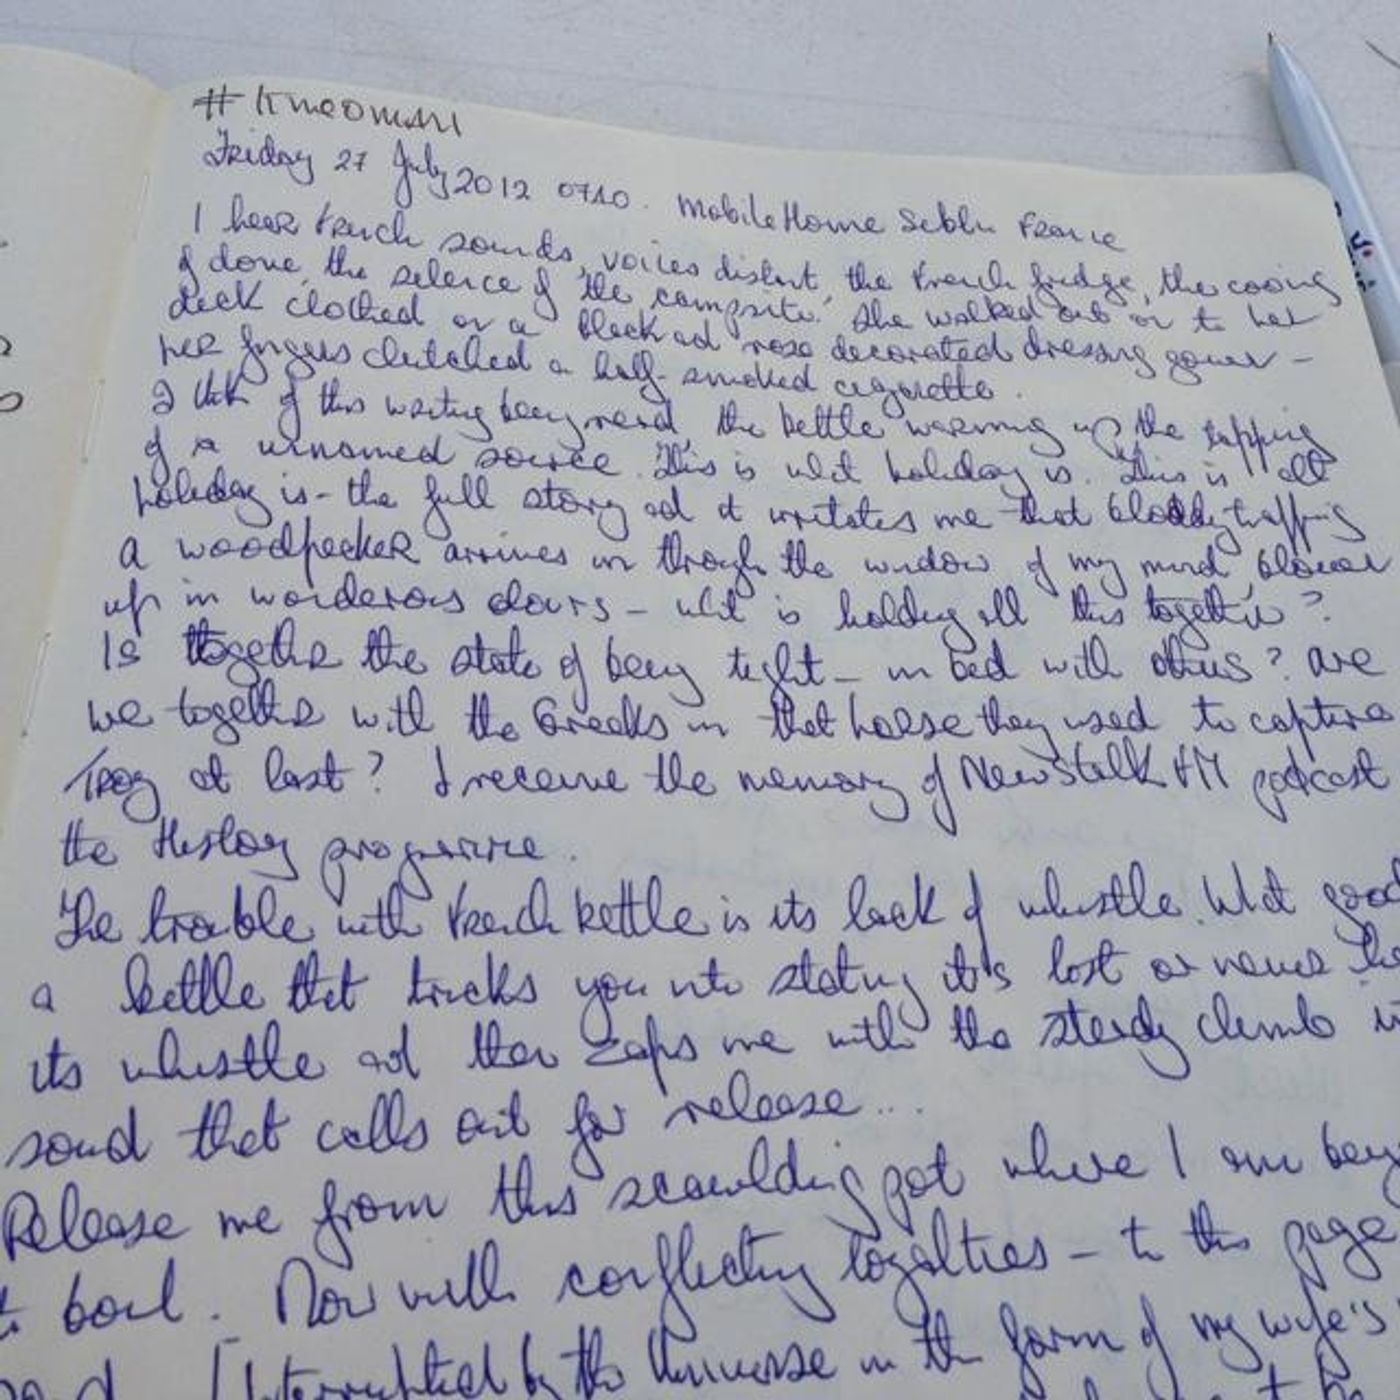 Friday 27 July 2012 0710. Mobile Home France
I hear French sounds, voices distant, the French fridge, the cooing
of dove, the silence of the campsite. She walked out on to her
deck clothed in a black and rose decorated dressing gown -
her fingers clutched a half-smoked cigarette.
I think of this writing being read, the kettle warming up, the tapping
of a unnamed source. This is what holiday is. This is all
holiday is - the full story and it irritates me that bloody tapping
a woodpecker arrives in through the window of my mind, blown
up in wonderous colours - what is holding all this together?
Is together the state of being tight - in bed with others? Are
we together with the Greeks in that horse they used to capture
Troy at last? I receive the memory of Newstalk FM podcast
the History programme.
The trouble with French kettle is its lack of whistle. What good
a kettle that tricks you into stating it's lost or never the
its whistle and then zaps me with the steady climb in
sound that calls out for release...
Release me from this scaulding pot where I am being
to boil. Now with conflicting loyalties - to this page
Interrupted by the Universe in the form of my wife's